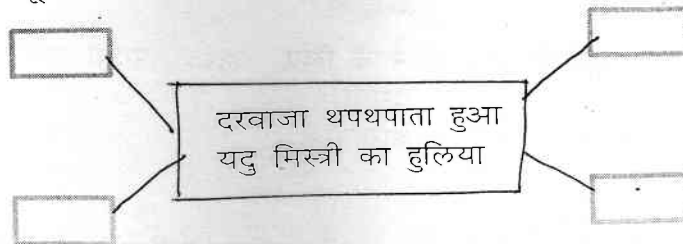 दरवाजा थपथपाता हुआ
यदु मिस्त्री का हुलिया